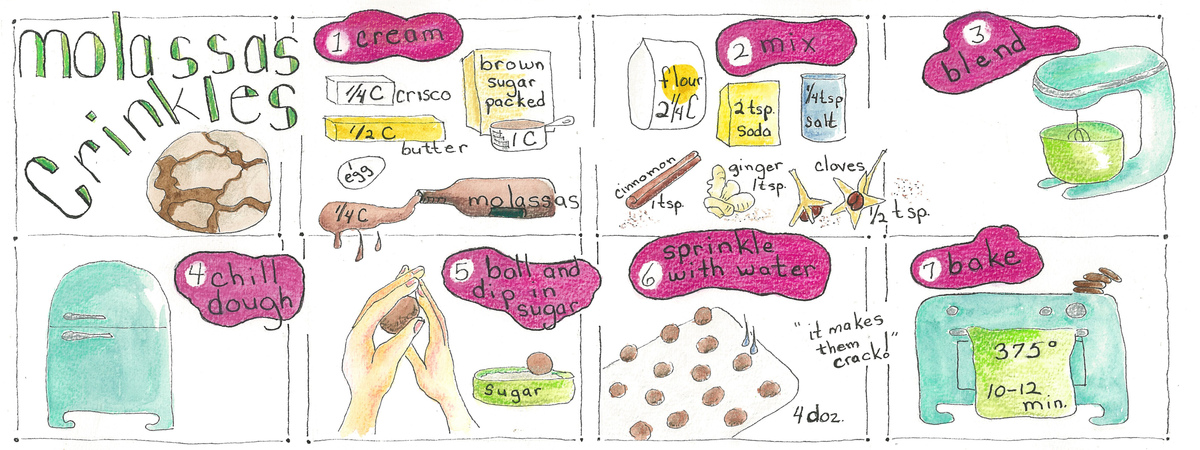 molassas
Crinkles
1 cream
1/4 C crisco
1/2 C
butter
brown
sugar
packed
1 C
egg
1/4 C
molassas
2 mix
flour
2 1/4 C
2 tsp.
soda
1/4 tsp
salt
cinnamon
1 tsp.
ginger
1 tsp.
cloves
1/2 tsp.
3
blend
4 chill
dough
5 ball and
dip in
sugar
sugar
6 sprinkle
with water
"it makes
them
crack!"
4 doz.
7 bake
375°
10-12
min.